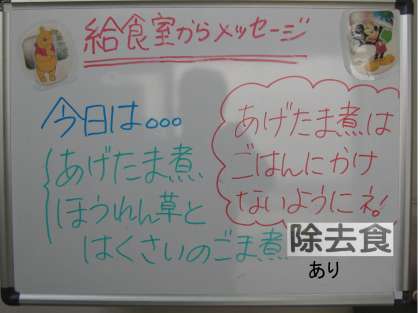 給食室からメッセージ
今日は。。。
あげたま煮
ほうれん草と
はくさいのごま煮
あげたま煮は
ごはんにかけ
ないようにネ!
除去食
あり